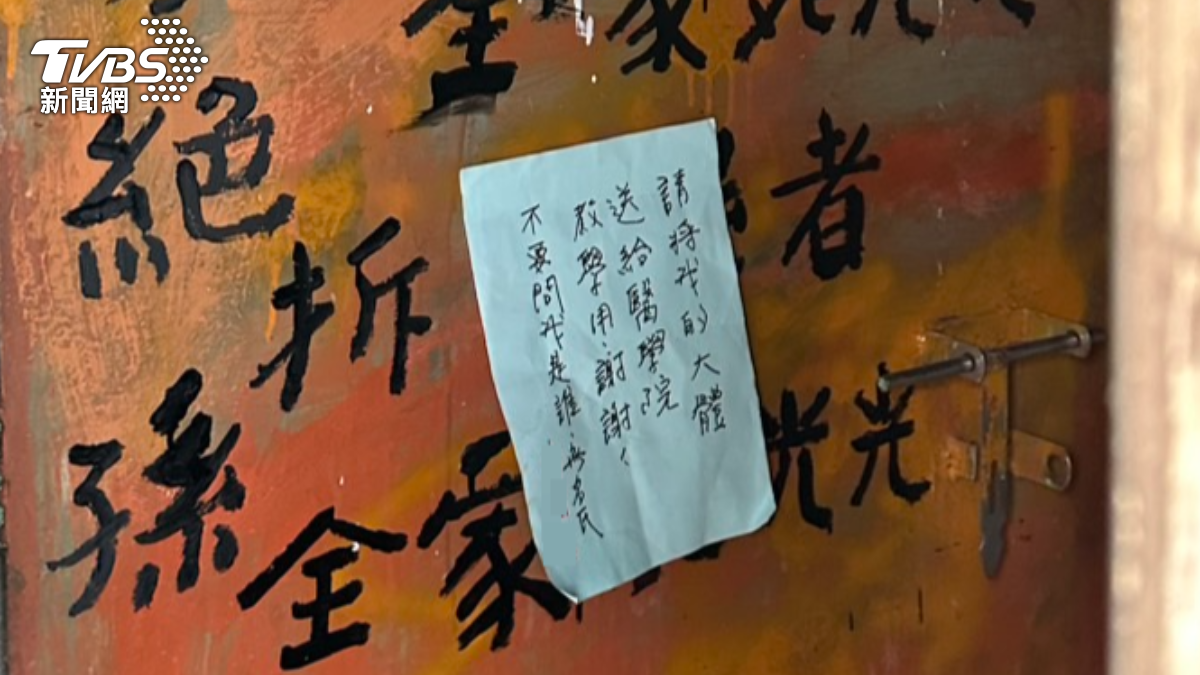 TVBS
新聞網
請將我的大體
送給醫學院
教學用、謝謝!
不要問我是誰、無名氏
全家死光光
者
拆
絕
孫
全家 光光